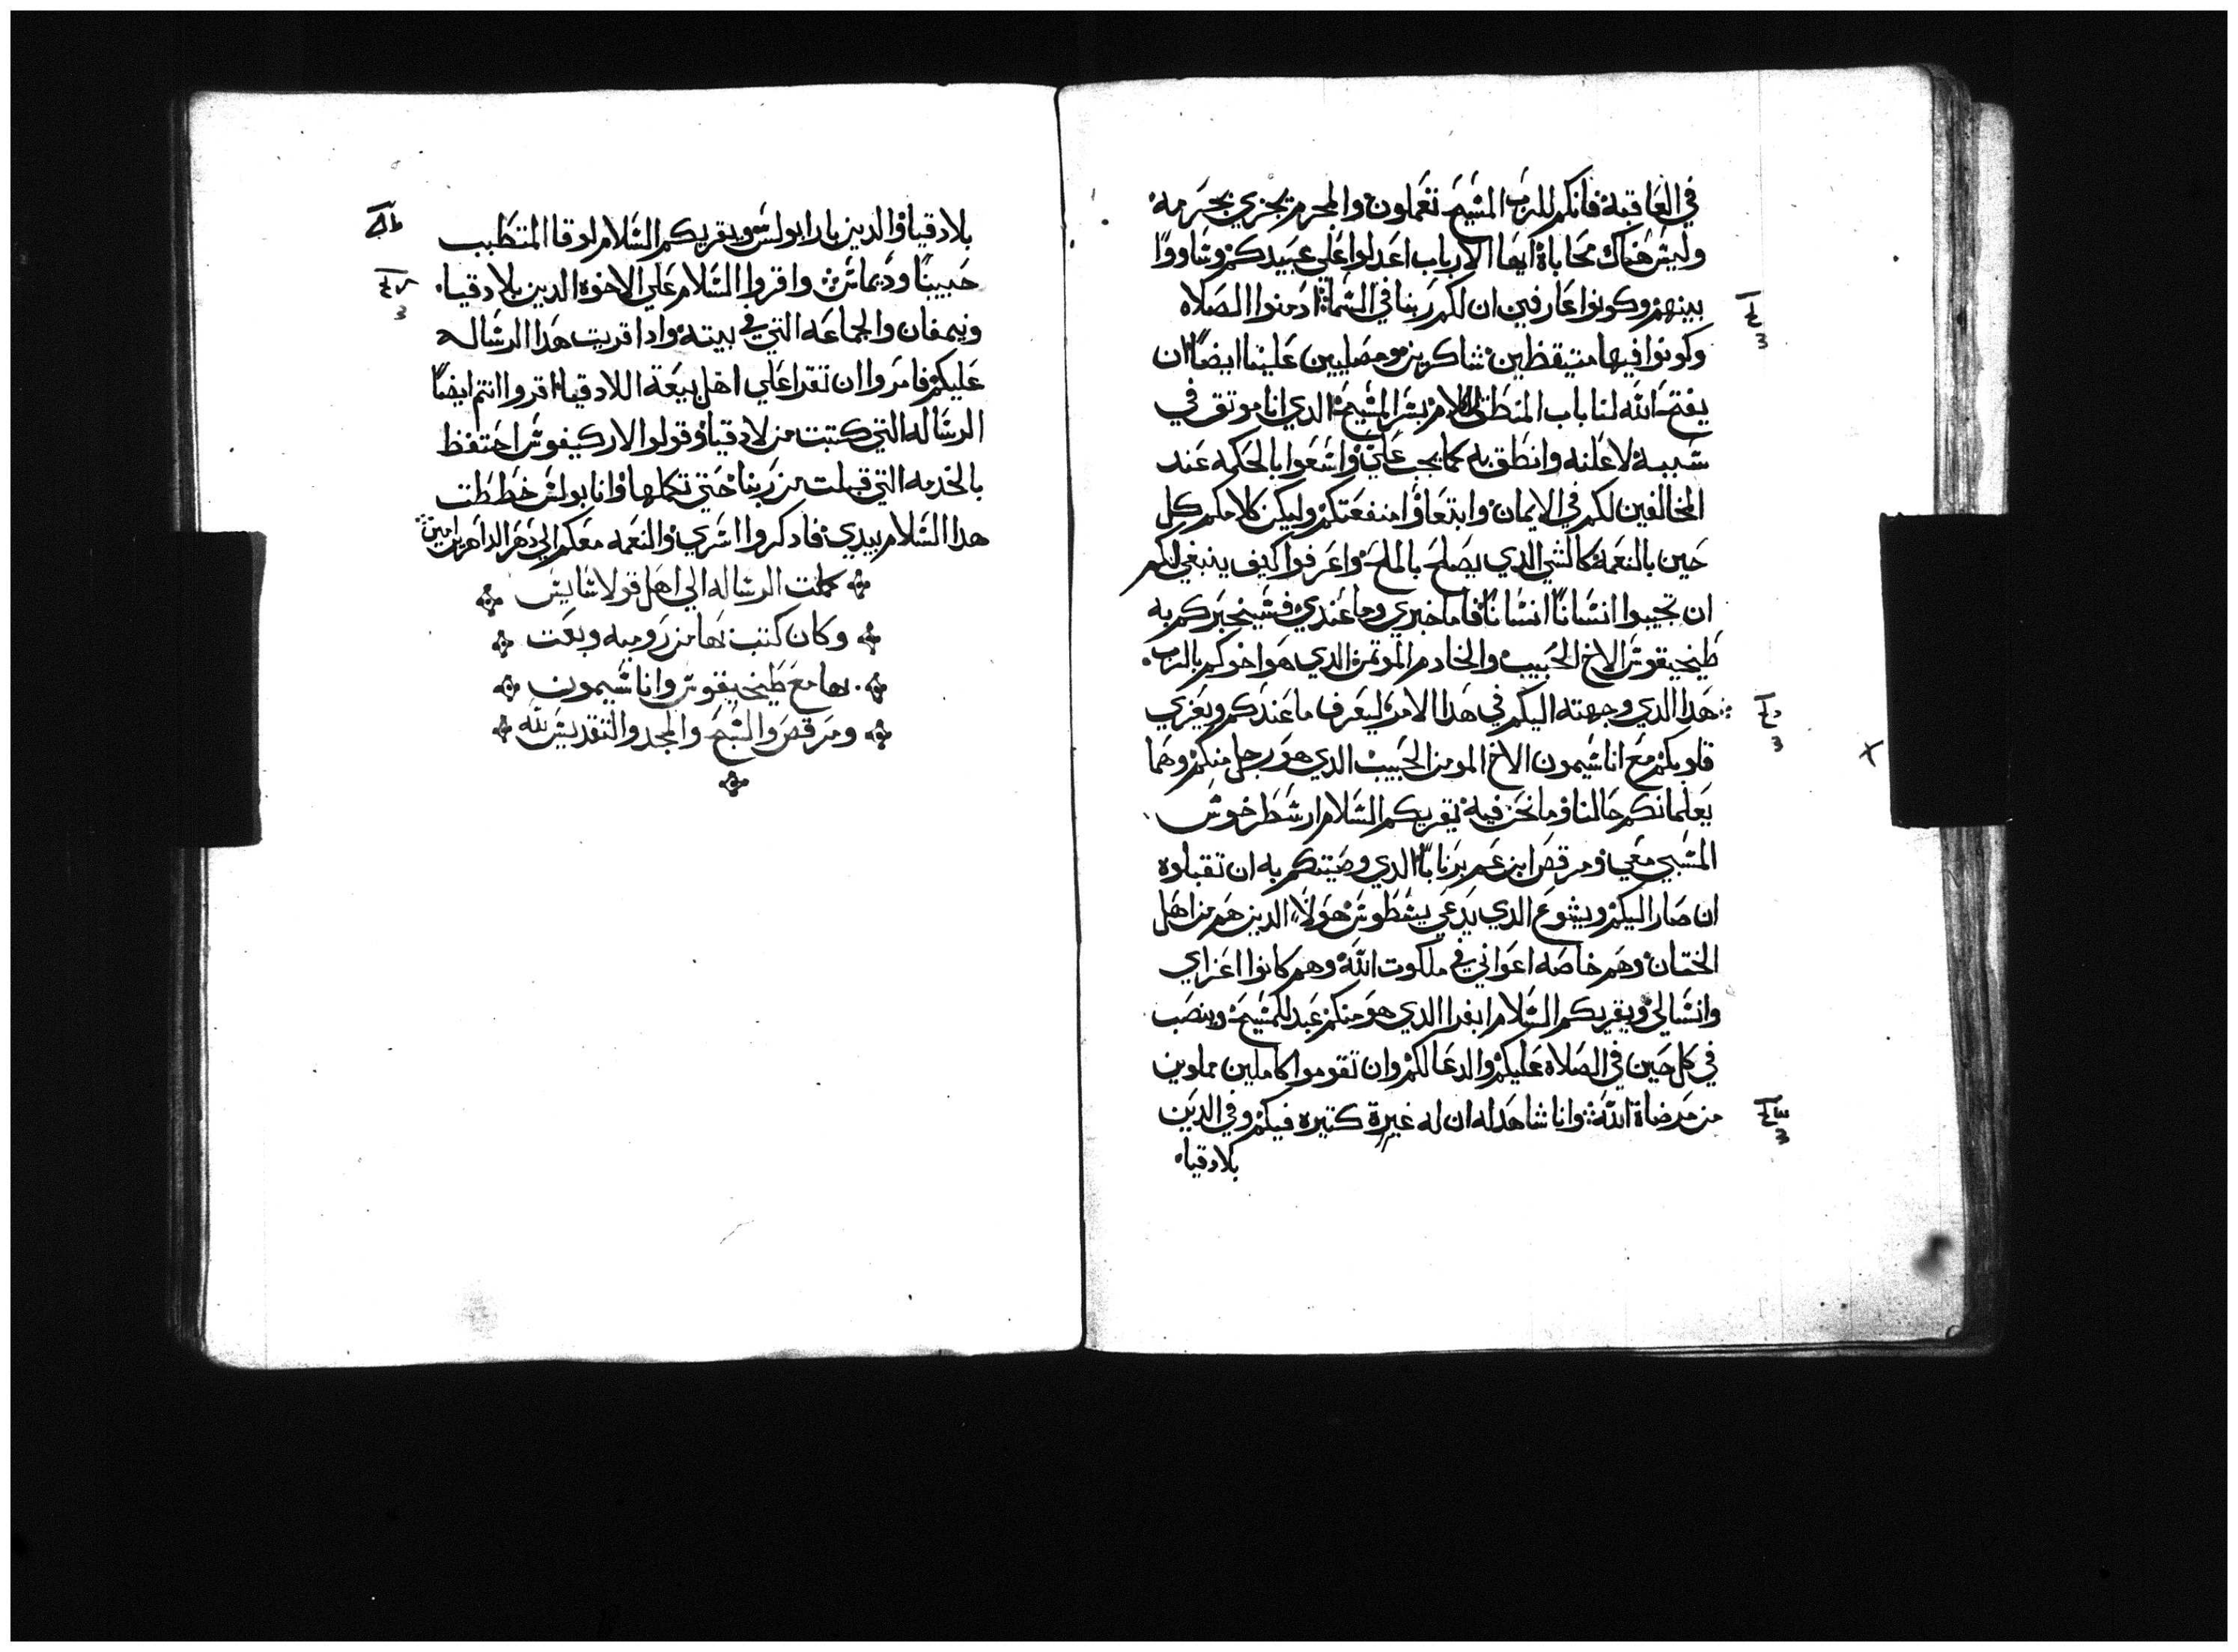 في العاقبة فانكم للرب المسيح تعملون والمجرم يجزي بجرمه
وليس هناك محاباة ايها الارباب اعدلوا علي عبيدكم وساووا
بينهم وكونوا عارفين ان لكم ربا في السماء ادمنوا الصلاه
وكونوا فيها متيقظين شاكرين ومصليين علينا ايضا ان
يفتح الله لنا باب المنطق لكلام بسر المسيح الدي انا موتق في
سببه لاعلنه وانطق به كما يجب علي واسعوا بالحكمه عند
المخالفين لكم في الايمان وابتعاوا منفعتكم وليكن كلامكم كل
حين بالنعمة كالشي الدي يصلح بالملح واعرفوا كيف ينبغي لكم
ان تجيبوا انسانا انسانا فاما خبري وما عندي فسيخبركم به
طيخيقوس الاخ الحبيب والخادم الموتمن الدي هو اخوكم بالرب
هدا الدي وجهته اليكم في هدا الامر ليعرف ما عندكم ويعزي
قلوبكم مع اناسيمون الاخ المومن الحبيب الدي هو رجل منكم وهما
يعلمانكم حالنا وما نحن فيه يقريكم السلام ارسطرخوس
المسبي معي ومرقص ابن عم برنابا الدي وصيتكم به ان تقبلوه
ان صار اليكم ويشوع الدي يدعي يسطوس هولاء الدين هم من اهل
الختان وهم خاصه اعواني في ملكوت الله وهم كانوا اعزاي
وانسالي ويقريكم السلام ابفرا الدي هو منكم عبد للمسيح وينصب
في كل حين في الصلاه عليكم والدعا لكم وان تقوموا كاملين مملوين
من مرضاة الله وانا شاهد له ان له غيرة كتيره فيكم وفي الدين
بلادقيا
بلادقيا والدين بارابولس ويقريكم السلام لوقا المتطبب
حبيبنا وديماس واقروا السلام علي الاخوه الدين بلادقيا
ونيمفان والجماعه التي في بيته وادا قريت هدا الرساله
عليكم فامروا ان تقرا علي اهل بيعة اللادقيا اقروا انتم ايضا
الرساله التي كتبت من لادقيا وقولوا لاركيفوس احتفظ
بالخدمه التي قبلت من ربنا حتي تكملها وانا بولس خططت
هدا السلام بيدي فادكروا اسري والنعمه معكم الي دهر الداهرين امين
كملت الرساله الي اهل قولاسايس
وكان كتب بها من روميه وبعت
بها مع طيخيقوس واناسيمون
ومرقص والسبح والمجد والتقديس لله